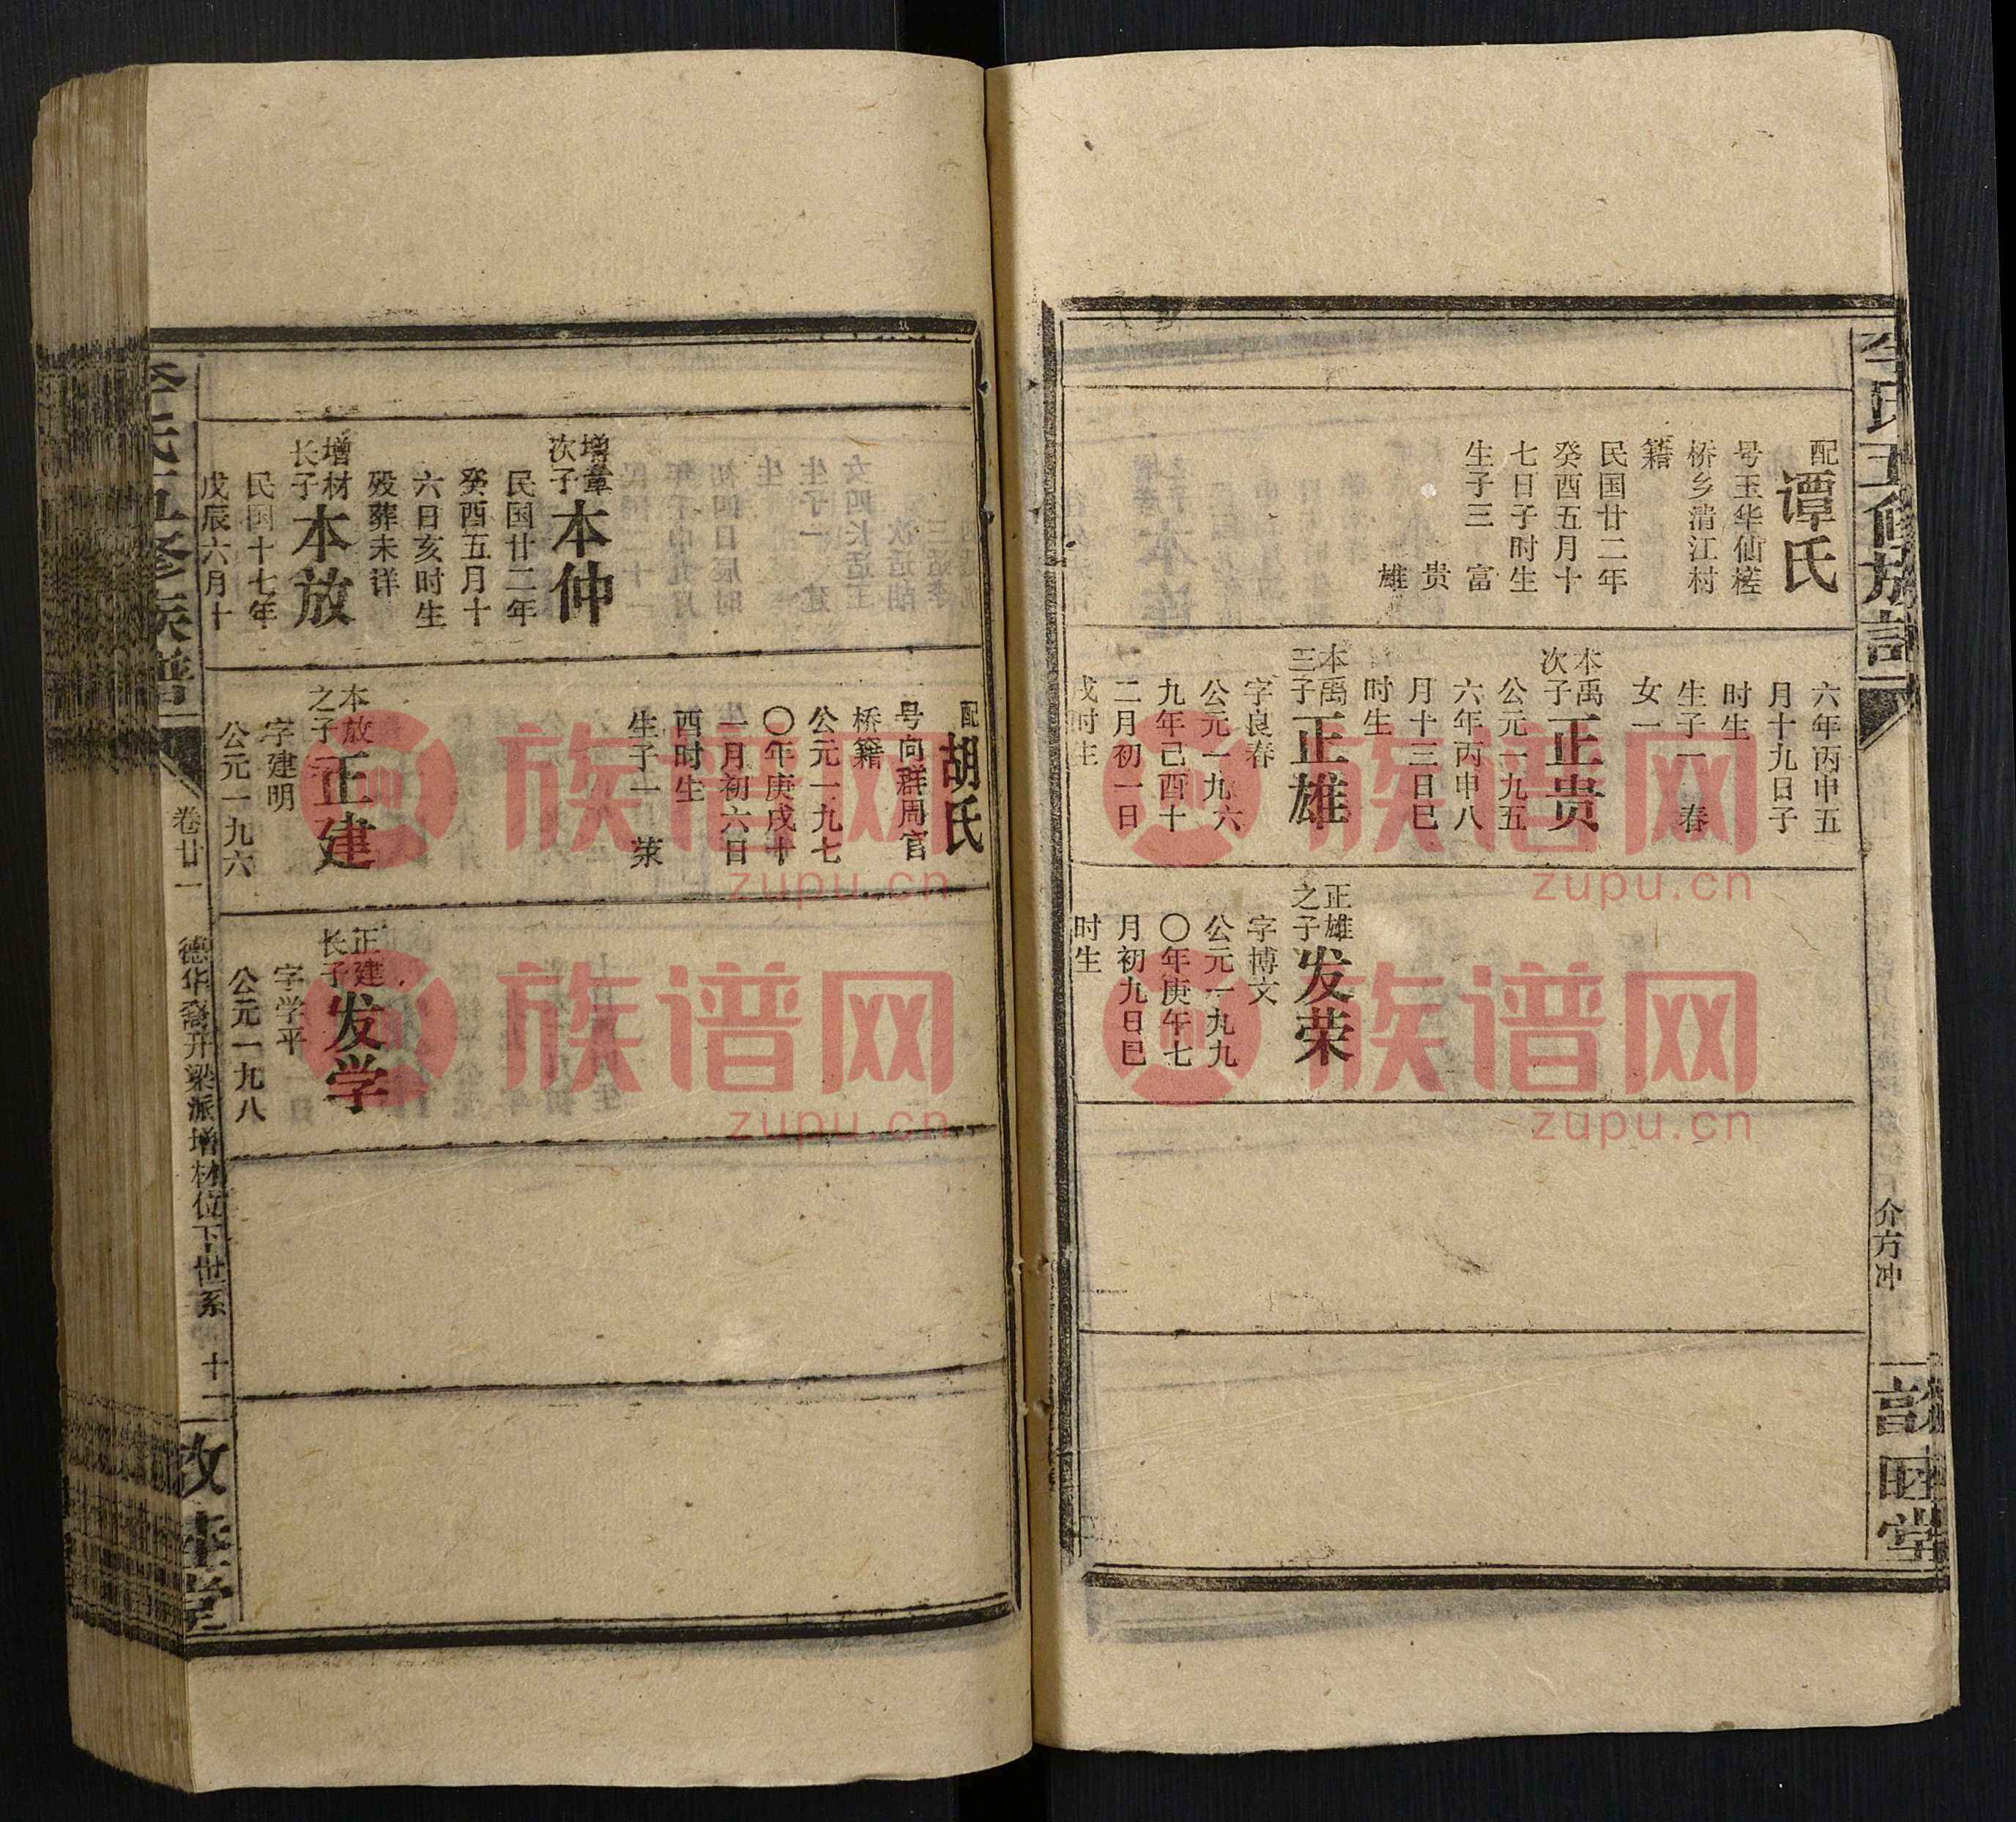 配谭氏
号玉华仙槎
桥乡清江村
籍
民国廿二年
癸酉五月十
七日子时生
生子三 富
贵
雄
六年丙申五
月十九日子
时生
生子一 春
女一
本禹
次子
正贵
公元一九五
六年丙申八
月十三日巳
时生
本禹
三子
正雄
字良春
公元一九六
九年己酉十
二月初一日
戌时生
正雄
之子
发荣
字博文
公元一九九
〇年庚午七
月初九日巳
时生
介方冲
增章
次子
本仲
民国廿二年
癸酉五月十
六日亥时生
殁葬未详
增材
长子
本放
民国十七年
戊辰六月十
配胡氏
号向群周官
桥籍
公元一九七
〇年庚戌十
一月初六日
酉时生
生子一 荣
本放
之子
正建
字建明
公元一九六
正建
长子
发学
字学平
公元一九八
卷廿一
德华裔升梁派增材位下世系
十一
族谱网
zupu.cn
族谱网
zupu.cn
族谱网
zupu.cn
族谱网
zupu.cn